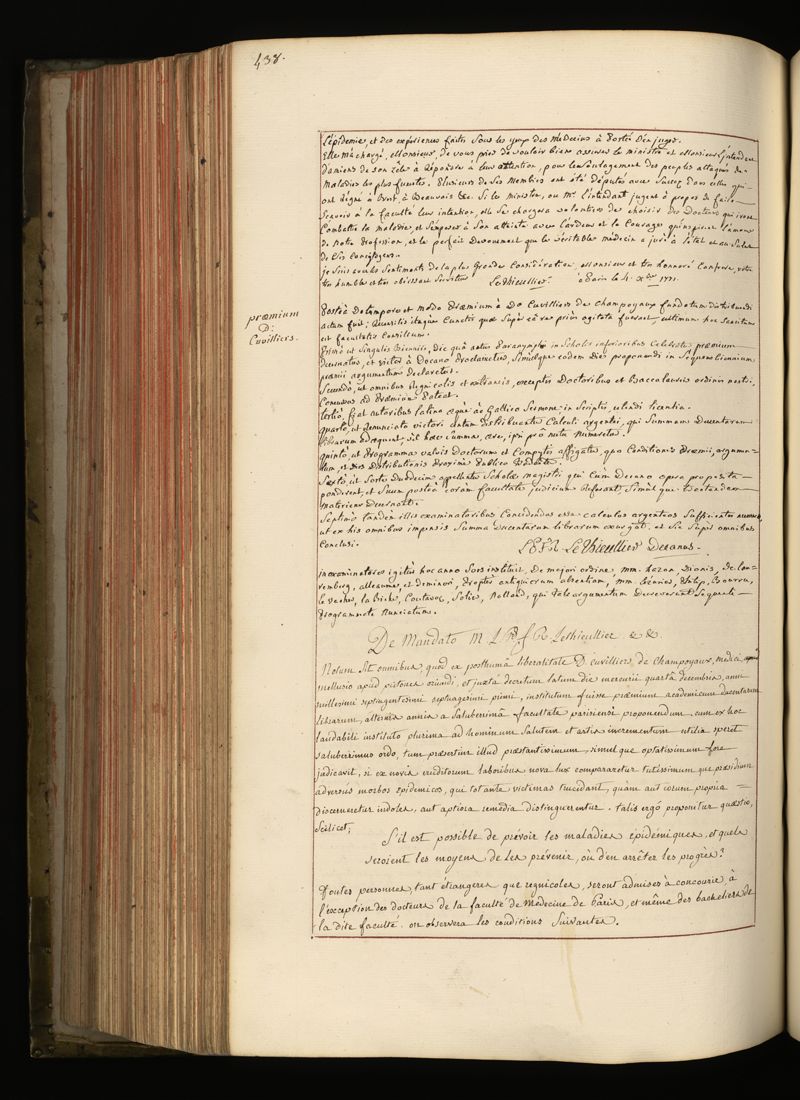 438.
L'épidémie, et des expériences faites sous les yeux des médecins à portée d'en juger.
Elle m'a chargé, Monsieur, de vous prier de vouloir bien assurer le ministre et Monsieur l'intendant
d'amiens de son zèle à répondre à leur attention, pour le soulagement des peuples attaqués de
maladies les plus funestes. Plusieurs de ses membres ont été députés avec succez dans celles qui
ont régné à Brest, à Beauvais &c. Si le ministre, ou Mr. l'intendant jugent à propos de faire
sçavoir à la faculté leur intention, elle se chargera volontiers de choisir des Docteurs qui iront
Combattre la maladie, et s'exposer à son atteinte avec l'ardeur et le courage qu'inspirent l'amour
de notre profession, et le parfait dévouement que le véritable médecin a juré à l'état et au salut
de ses concitoyens.
je suis avec les sentiments de la plus grande considération, Monsieur et très honnoré Confrere, votre
très humble et très obéissant serviteur Le Thieullier. à Paris le 4. Xbre 1771.
præmium
D:
Cuvilliers.
Postea de tempore et modo præmium à Do Cuvilliers de Champoyaux fundatum distribuendi
actum fuit; quæsitis itaque cunctis quæ super eâ re priùs agitata fuerant, ultimum hoc sancitum
est facultatis consilium.
Primò ut singulis Bienniis, die quâ actus Paranymphi in scholis inferioribus celebratur præmium
decernatur, et victor à Decano proclametur, simulque eodem die proponendi in sequens biennium
præmii argumentum declaretur.
Secundò, ut omnibus regnicolis et extraneis, exceptis Doctoribus et Baccalaureis ordinis nostri,
Concursus ad præmium pateat.
tertiò, fiat autoribus latino æquè ac Gallico sermone in scriptis, utendi licentia.
quartò, ut renunciato victori centum distribuantur Calculi argentei, qui summam ducentarum
librarum adæquent, vel hæc summa, ære, ipsi pro nutu numeretur.
quintò, ut programma valvis Doctorum et Compitis affigatur, quo Conditiones præmii, argumen=
tum, et dies distributionis proximæ publico pateant.
Sextò, ut sorte duodecim appellentur Scholæ magistri qui cùm Decano opera proposita
ponderent, et suum postea coram facultate judicium referant, simulque tractandam
materiem decernant.
Septimò tandem illis examinatoribus concedendos esse calculos argenteos sufficienti numero,
ut ex his omnibus impensis summa ducentarum librarum exurgat. et sic super omnibus
conclusi. L. P. F. R. Le Thieullier Decanus.
in examinatores igitur hoc anno sors instituit, de majori ordine, mm. hazon, Dionis, De lou-
remberg, alleaume, et deminori, propter antiquiorum absentiam, mm. Bénier, Philip, Bourru,
le vacher, la Brche, Coutavoz, Solier, Malloud, qui tale argumentum decreverunt sequenti
programmate nunciatum.
De Mandato M. L. P. f. R. Lethieullier &. &.
Notum sit omnibus, quod ex posthumâ liberalitate D Cuvillier, de Champoyaux, medici, apud
mellusio apud pictones oriundi, et juxtà decretum latum die mercurii quartâ decembris, anni
millesimi septingentesimi septuagesimi primi, institutum fuisse præmium academicum ducentarum
librarum, alternis annis a Saluberrimâ facultate parisiensi proponendum. cum ex hoc
laudabili instituto plurima ad hominum salutem et artis incrementum utilia speret
saluberrimus ordo, tum præsertim illud præstantissimum, simul que optatissimum fore
judicavit, si ex novis eruditorum laboribus nova lux compararetur tutissimum que præsidium
adversùs morbos epidemicos, qui tot ante victimas trucidant, quàm aut eorum propria =
discerneretur indoles, aut aptiora remedia distinguerentur. talis ergò proponitur quæstio,
scilicet;
S'il est possible de prévoir les maladies épidémiques, et quels
seroient les moyens de les prévenir, où d'en arrêter les progrès?
Toutes personnes, tant étrangeres que regnicoles, seront admises à concourir, à
l'exception des docteurs de la faculté de médecine de Paris, et même des bacheliers de
la dite faculté. on observera les conditions suivantes.